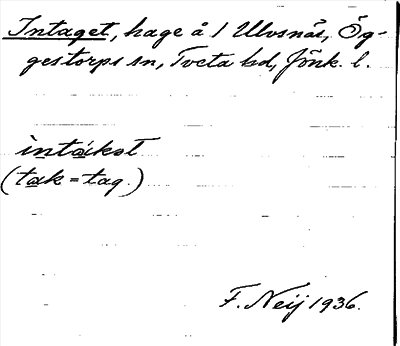 Intaget, hage å 1 Ulvsnäs, Ög-
gestorps sn, Tveta hd, Jönk. l.
intákət
(tak = tag.)
F. Neij 1936.